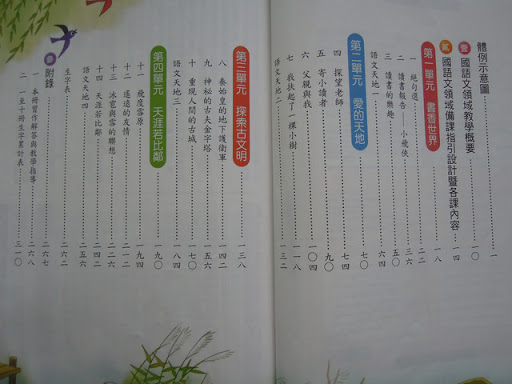 體例示意圖……一
壹 國語文領域教學概要……一〇
貳 國語文領域備課指引設計暨各課內容…一四
第一單元 書香世界……一八
一 絕句選……二二
二 讀書報告——小飛俠……三六
三 讀書的樂趣……五〇
語文天地一……六四
第二單元 愛的天地……七〇
四 探望老師……七四
五 寄小讀者……九〇
六 父親與我……一〇四
七 我扶起了一棵小樹……一一八
語文天地二……一三二
第三單元 探索古文明……一三八
八 秦始皇的地下護衛軍……一四二
九 神祕的古夫金字塔……一五六
十 重現人間的古城……一七〇
語文天地三……一八四
第四單元 天涯若比鄰……一九〇
十一 飛度雪原……一九四
十二 遙遠的友情……二一二
十三 冰雹與雪的聯想……二二六
十四 天涯若比鄰……二四二
語文天地四……二五六
生字表……二六二
參 附錄……二六七
一 本冊習作解答與教學指導……二六八
二 一至十冊生字累計表……三一〇